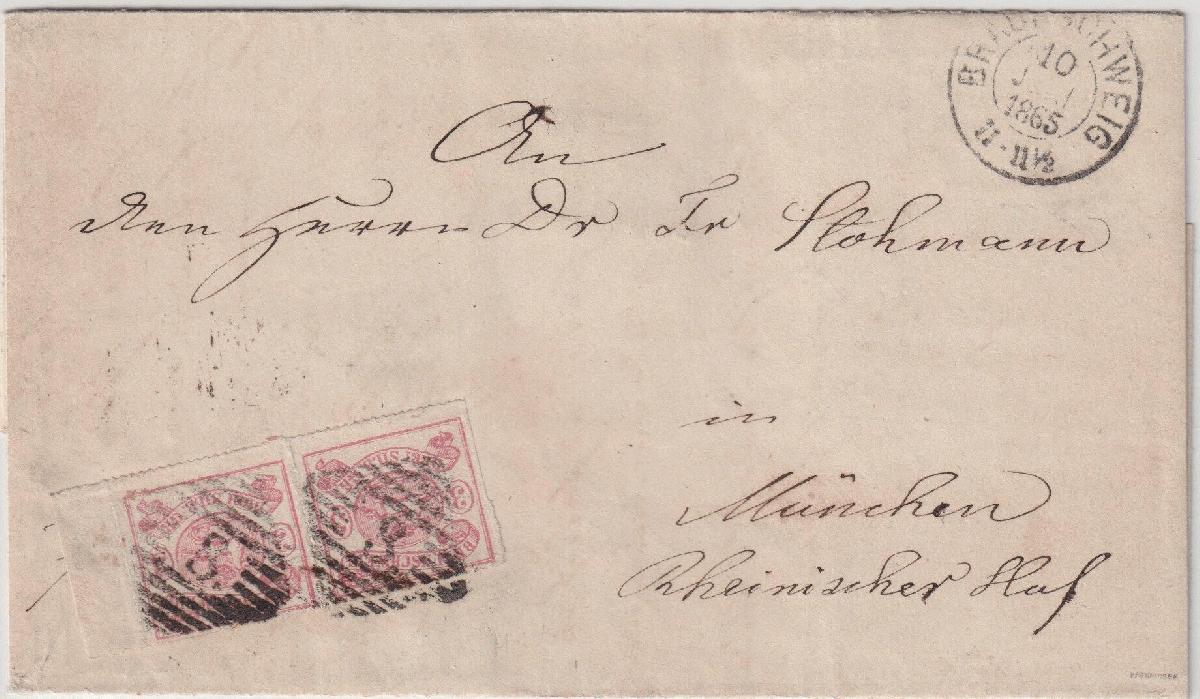 BRAUNSCHWEIG
10
1865
11 - 11½
An
den Herrn Dr Fr Stohmann
in
München
Rheinischer Hof
8
8